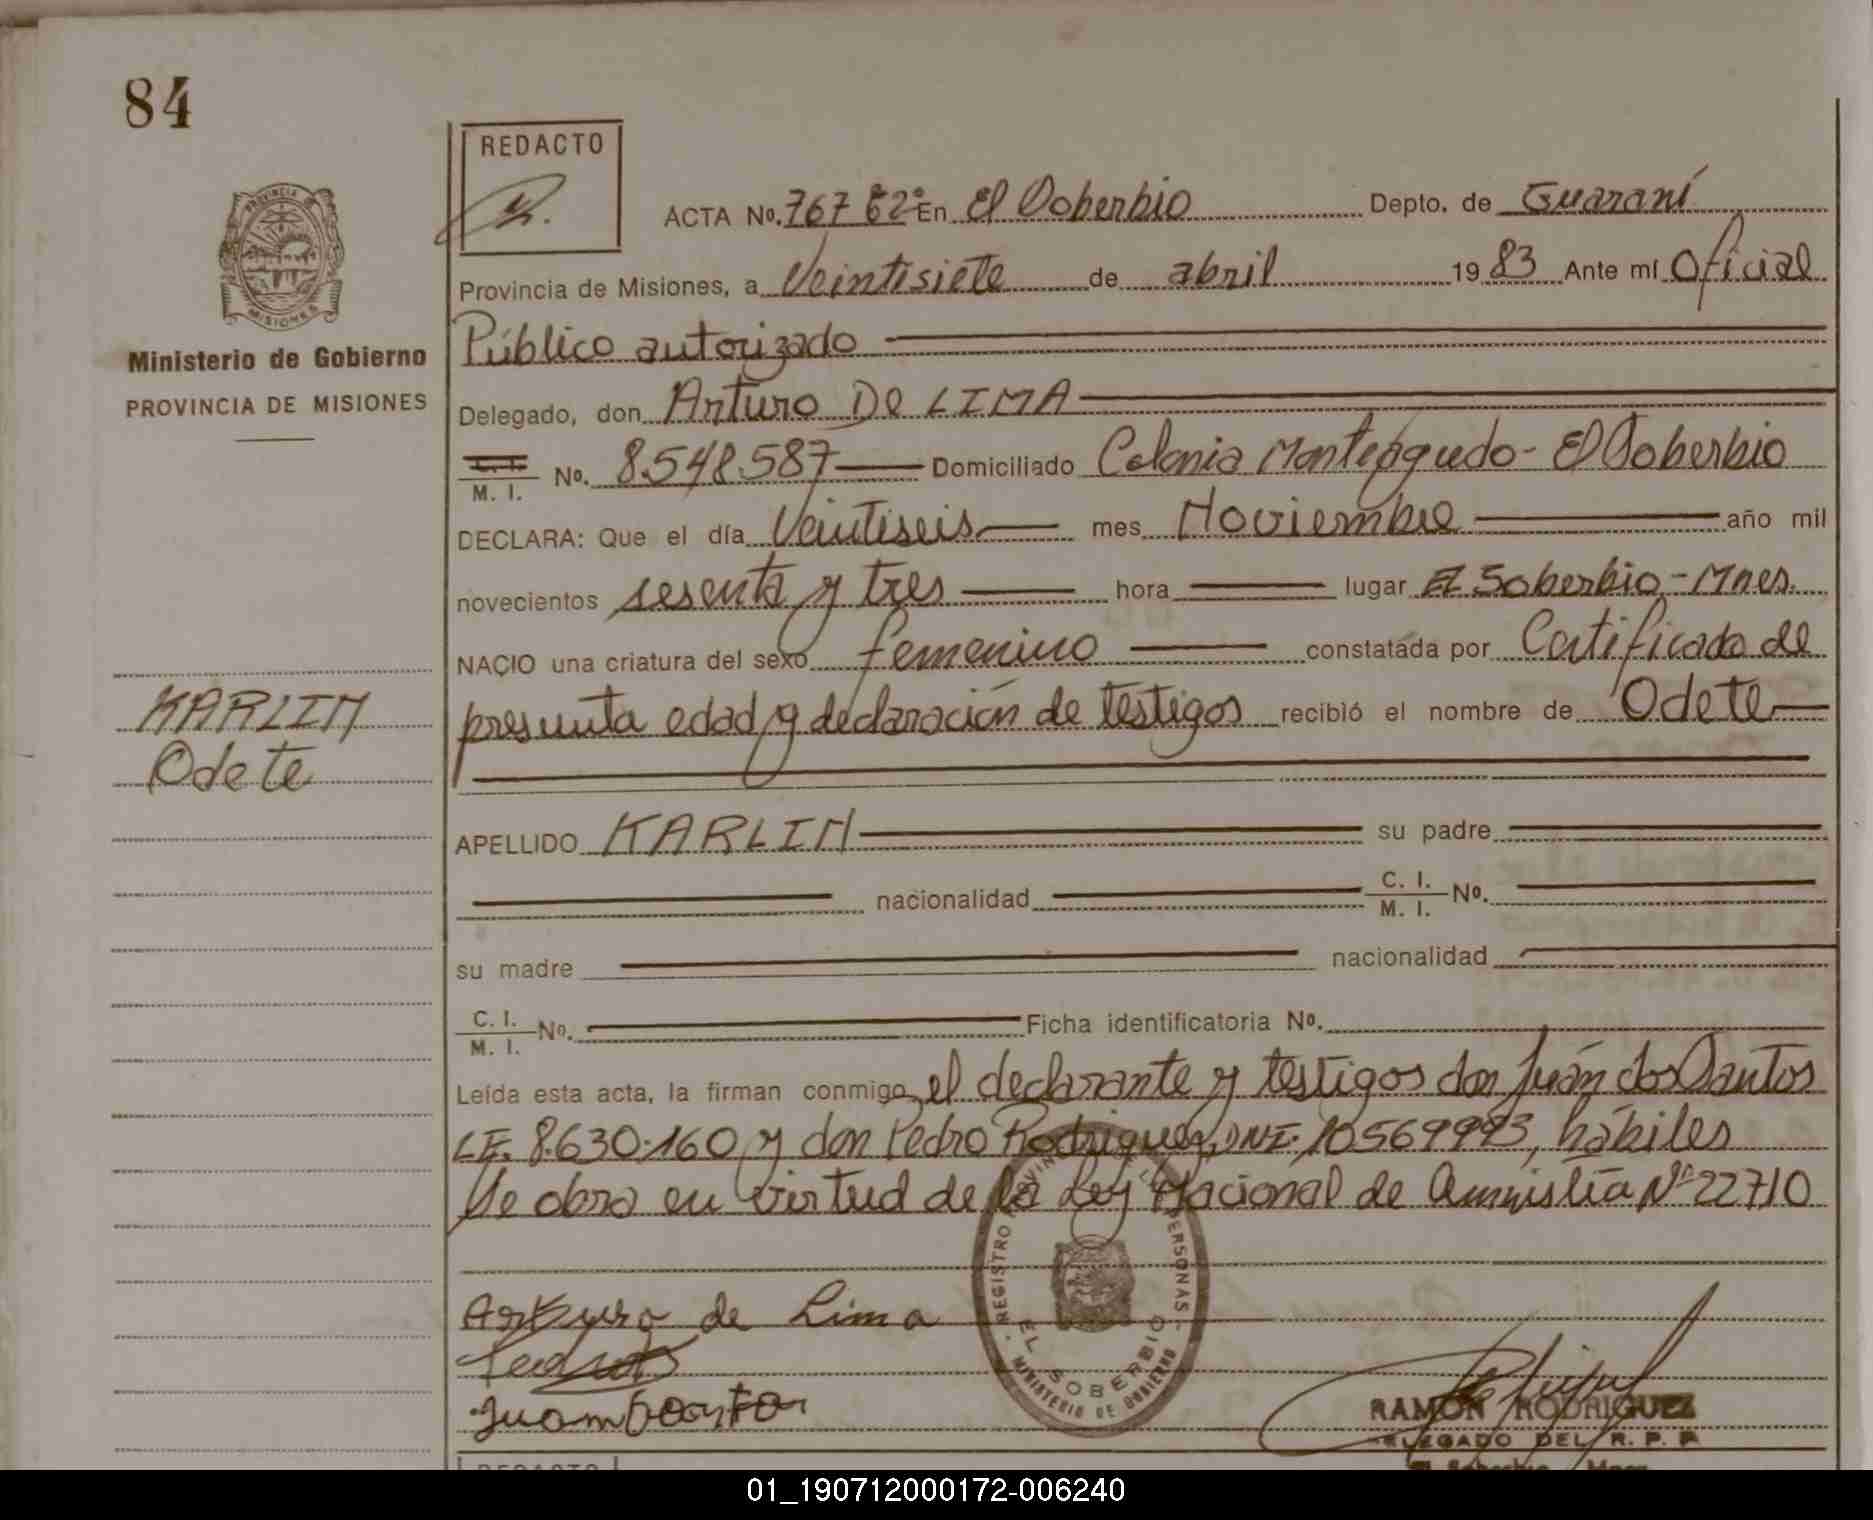 84
REDACTO
ACTA Nº. 767 Eº2º En El Soberbio Depto. de Guaraní
Provincia de Misiones, a Veintisiete de abril 1983 Ante mí Oficial
Público autorizado
Delegado, don Arturo De LIMA
M. I. Nº. 8.548.587 Domiciliado Colonia Monteagudo - El Soberbio
DECLARA: Que el día Veintiseis mes Noviembre año mil
novecientos sesenta y tres hora lugar El Soberbio - Mnes.
NACIO una criatura del sexo femenino constatada por Certificado de
presunta edad y declaración de testigos recibió el nombre de Odete
APELLIDO KARLIN su padre
nacionalidad C. I. M. I. Nº.
su madre nacionalidad
C. I. M. I. Nº. Ficha identificatoria Nº.
Leída esta acta, la firman conmigo, el declarante y testigos don Juán dos Santos
L.E. 8.630.160 y don Pedro Rodriguez, DNI. 10569993, hábiles
Se obra en virtud de la Ley Nacional de Amnistía Nº 22710
Arturo de Lima
PROVINCIA
MISIONES
Ministerio de Gobierno
PROVINCIA DE MISIONES
KARLIN
Odete
REGISTRO PROVINCIAL DE LAS PERSONAS
EL SOBERBIO
MINISTERIO DE GOBIERNO
RAMON RODRIGUEZ
DELEGADO DEL R. P. P.
El Soberbio Mnes.
REDACTO
01_190712000172-006240